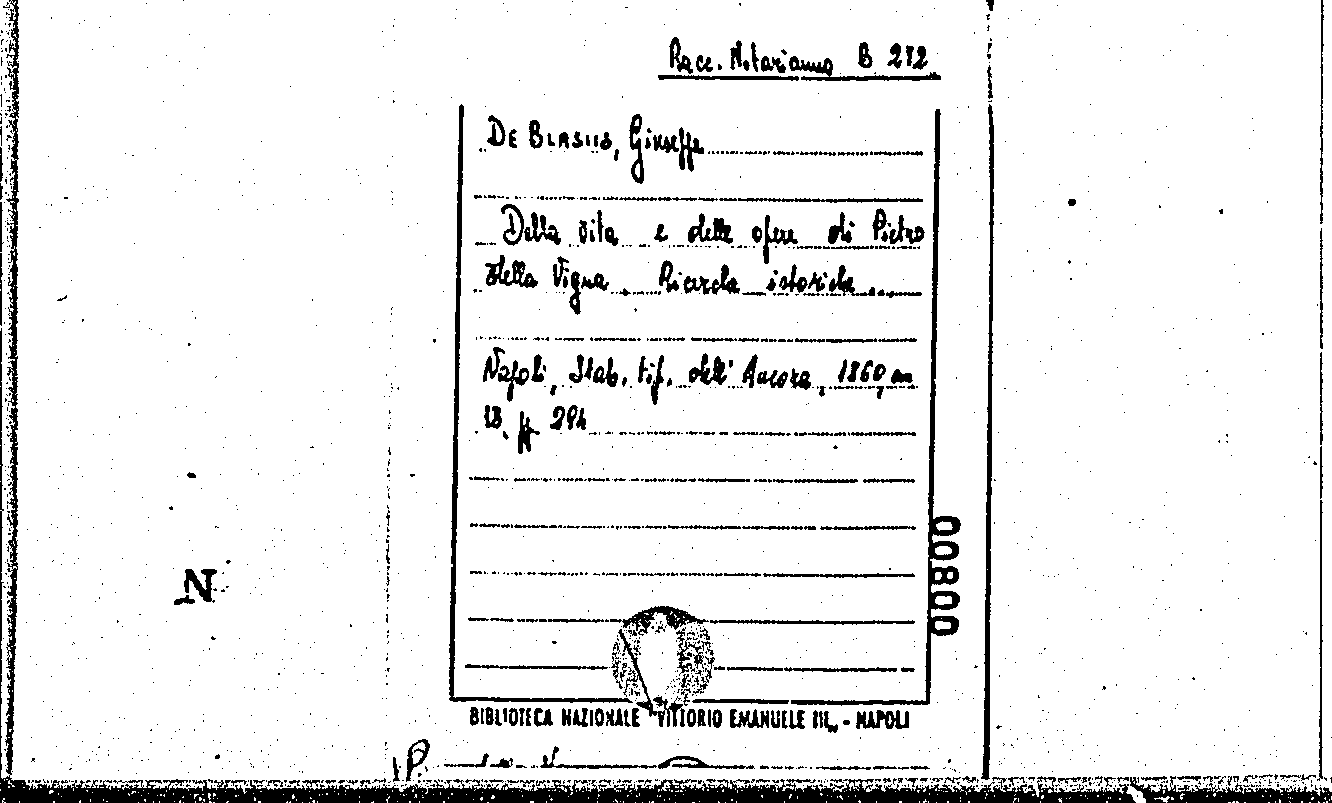 Racc. Notarianni B 272
DE BLASIIS, Giuseppe
Della vita e delle opere di Pietro
della Vigna. Ricerche istoriche ...
Napoli, Stab. tip. dell' Ancora, 1860, in
18. pp. 294
00800
N
BIBLIOTECA NAZIONALE "VITTORIO EMANUELE III„ - NAPOLI